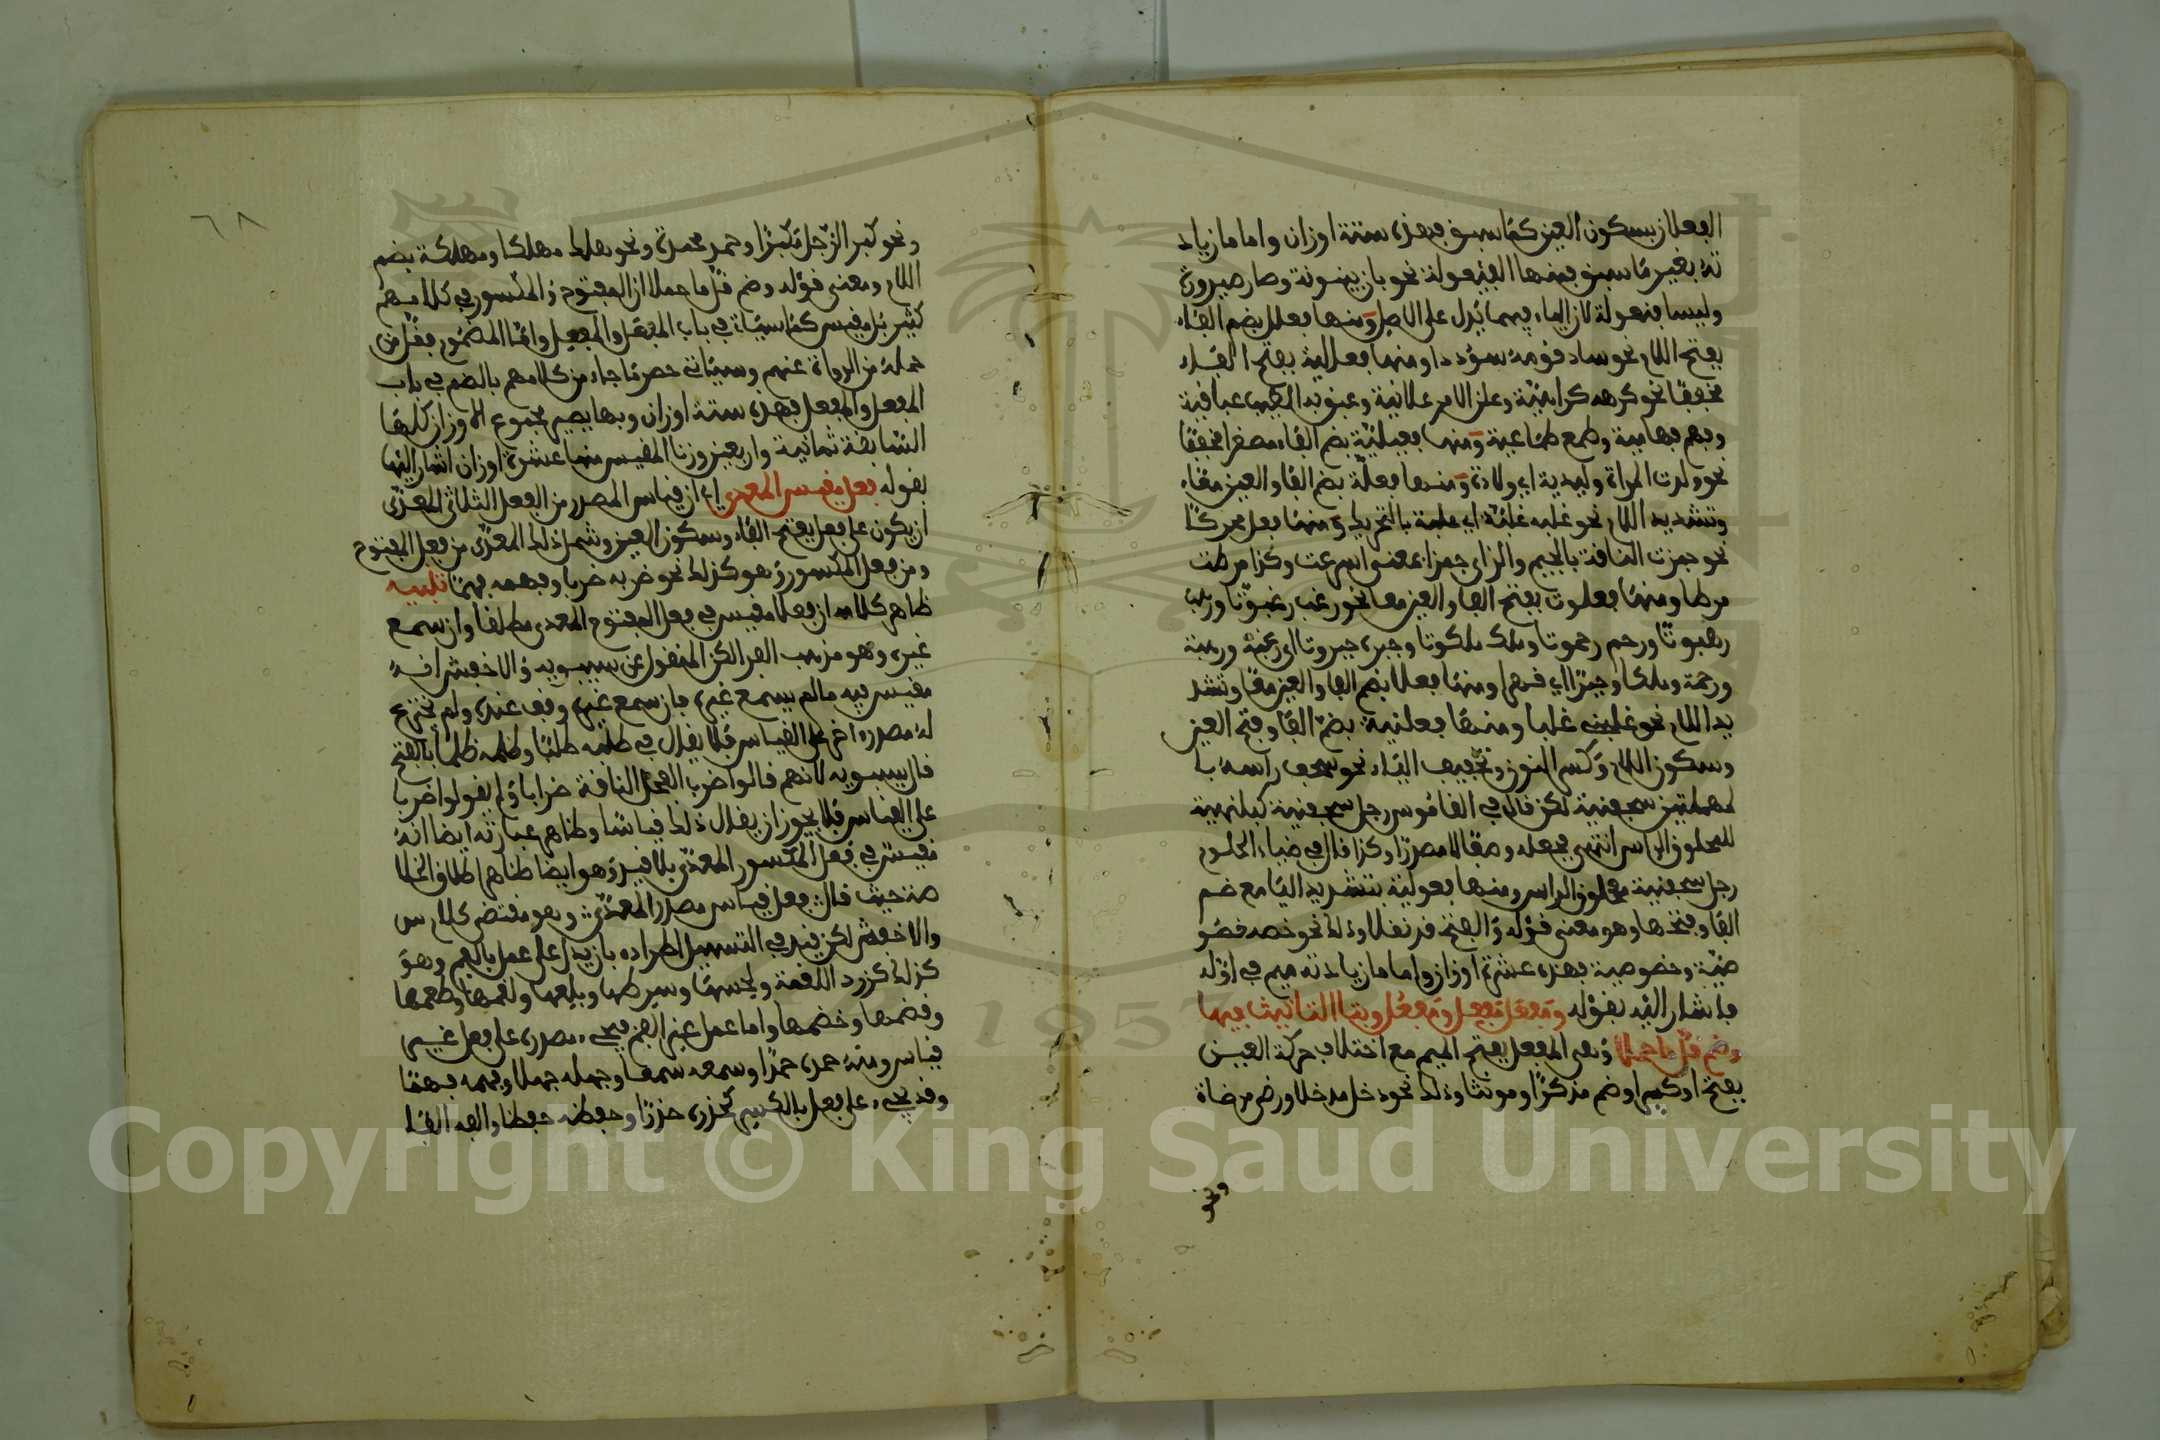 الفعلان بسكون العين كما سبق فهذه ستة اوزان واما ما زياد
ته بغير ما سبق فمنها الفيعولة نحو بان بينونة وصار صيرورة
وليسا فعولة لان الياء فيهما تدل على الاصل ومنها فعلل بضم الفاء
بفتح اللام نحو ساد قومه سؤددا ومنها فعالية بفتح الفاء
مخففا نحو كره كراهية وعلن الامر علانية وعبق به الطيب عباقية
وفهم فهامية وطمع طماعية ومنها فعيلية بضم الفاء مصغرا مخففا
نحو ولدت المراة وليدية اي ولادة ومنها فعلة بضم الفا والعين معا
وتشديد اللام نحو غلبه غلبة اي غلبة بالتحريك ومنها فعل محركا
نحو جمزت الناقة بالجيم والزاي جمزا بمعنى اسرعت وكذا مرطت
مرطا ومنها فعلوت بفتح الفا والعين معا نحو رغب رغبوتا ورهب
رهبوتا ورحم رحموتا وملك ملكوتا وجبره جبروتا اي رغبة ورهبة
ورحمة وملكا وجبرا اي قهرا ومنها فعلا بضم الفا والعين معا وتشد
يد اللام نحو غلبنى غلبا ومنها فعلنية بضم الفا وفتح العين
وسكون اللام وكسر النون وتخفيف الياء نحو سحف راسه با
لمهملتين سحفنية لكن قال في القاموس رجل سحفنية كبلهنية
للمحلوق الراس انتهى فجعله وصفا لا مصدرا وكذا قال في ضياء الحلوم
رجل سحفنية محلوق الراس ومنها فعولية بتشديد اليا مع ضم
الفا وفتحها وهو معنى قوله والفتح قد نقلا وذلك نحو خصه خصو
صية وخصوصية فهذه عشرة اوزان واما ما زيادته ميم في اوله
فاشار اليه بقوله ومفعل مفعل ومفعل وبتا التانيث فيها
وضم قل ما حملا وعى المفعل بفتح الميم مع اختلاف حركة العين
بفتح او كسر او ضم مذكرا ومونثا وذلك نحو دخل مدخلا ورضى مرضاة
ونحو
٦٨
ونحو كبر الرجل مكبرا وحمد محمدة ونحو هلك مهلكا ومهلكة بضم
اللام ومعنى قوله وضم قل ما حملا ان المفتوح والمكسور في كلامهم
كثير بل مقيس كما سياتي في باب المفعل والمفعل واما المضموم فقل من
حمله من الرواة عنهم وسياتي حصر ما جاء من كلامهم بالضم في باب
المفعل والمفعل فهذه ستة اوزان وبها يصير مجموع الاوزان كلها
السابقة ثمانية واربعين وزنا المقيس منها عشرة اوزان اشار اليها
بقوله فعل مقيس المعدى اي ان قياس المصدر من الفعل الثلاثي المعدى
ان يكون على فعل بفتح الفاء وسكون العين وشمل ذلك المعدى من فعل المفتوح
ومن فعل المكسور وهو كذلك نحو ضربه ضربا وفهمه فهما تنبيه
ظاهر كلامه ان فعلا مقيس في فعل المفتوح المعدى مطلقا وان سمع
غيره وهو مذهب الفرا لكن المنقول عن سيبويه والاخفش انه
مقيس فيه ما لم يسمع غيره فان سمع غيره وقف عنده ولم تخترع
له مصدرا اخر على القياس فلا يقال في طلبه طلبا وظلمه ظلما بالفتح
قال سيبويه لانهم قالوا ضرب الفحل الناقة ضرابا ولم يقولوا ضربا
على القياس فلا يجوز ان يقال ذلك قياسا وظاهر عبارته ايضا انه
مقيس في فعل المكسور المعدى بلا قيد وهو ايضا ظاهر اطلاق الخلا
صة حيث قال فعل قياس مصدر المعدى وهو مقتضى كلام س
والاخفش لكن قيد في التسهيل اطراده بان يدل على عمل بالفم وهو
كذلك كزرد اللقمة ولحسها وسرطها وبلعها ولقمها وطعمها
وقضمها وخضمها واما عمل غير الفم فمجيء مصدره على فعل غير
قياس ومنه حمده حمدا وسمعه سمعا وجهله جهلا وفهمه فهما
وقد يجيء على فعل بالكسر كحذره حذرا وحفظه حفظا والفه الفا